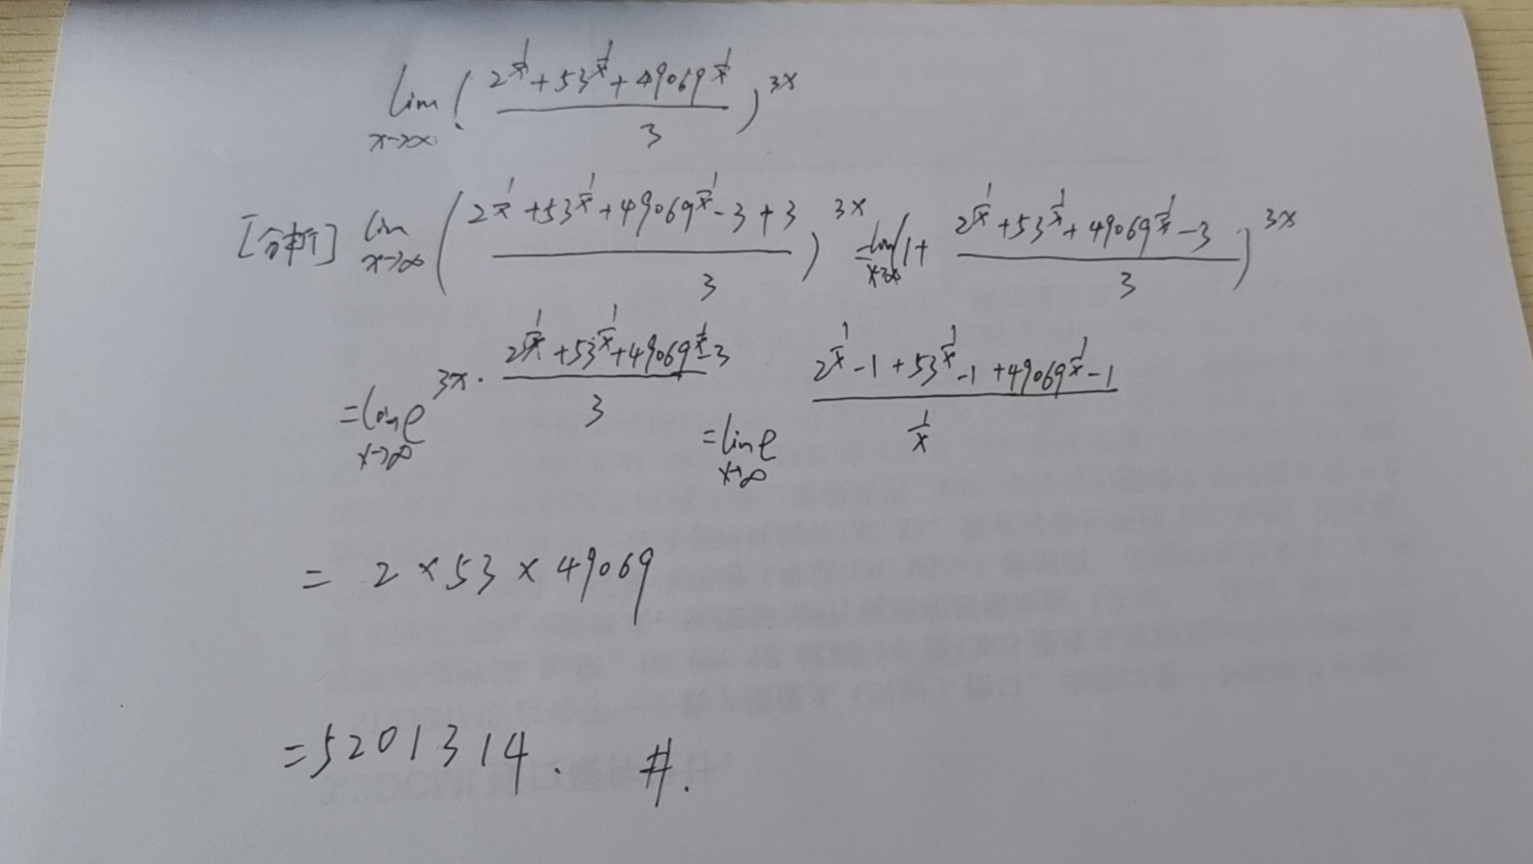 lim x→∞ ( (2^(1/x) + 53^(1/x) + 49069^(1/x)) / 3 )^(3x)
[分析] lim x→∞ ( (2^(1/x) + 53^(1/x) + 49069^(1/x) - 3 + 3) / 3 )^(3x) = lim x→∞ ( 1 + (2^(1/x) + 53^(1/x) + 49069^(1/x) - 3) / 3 )^(3x)
= lim x→∞ e^(3x · (2^(1/x) + 53^(1/x) + 49069^(1/x) - 3) / 3) = lim x→∞ e^((2^(1/x) - 1 + 53^(1/x) - 1 + 49069^(1/x) - 1) / (1/x))
= 2 × 53 × 49069
= 5201314. #.